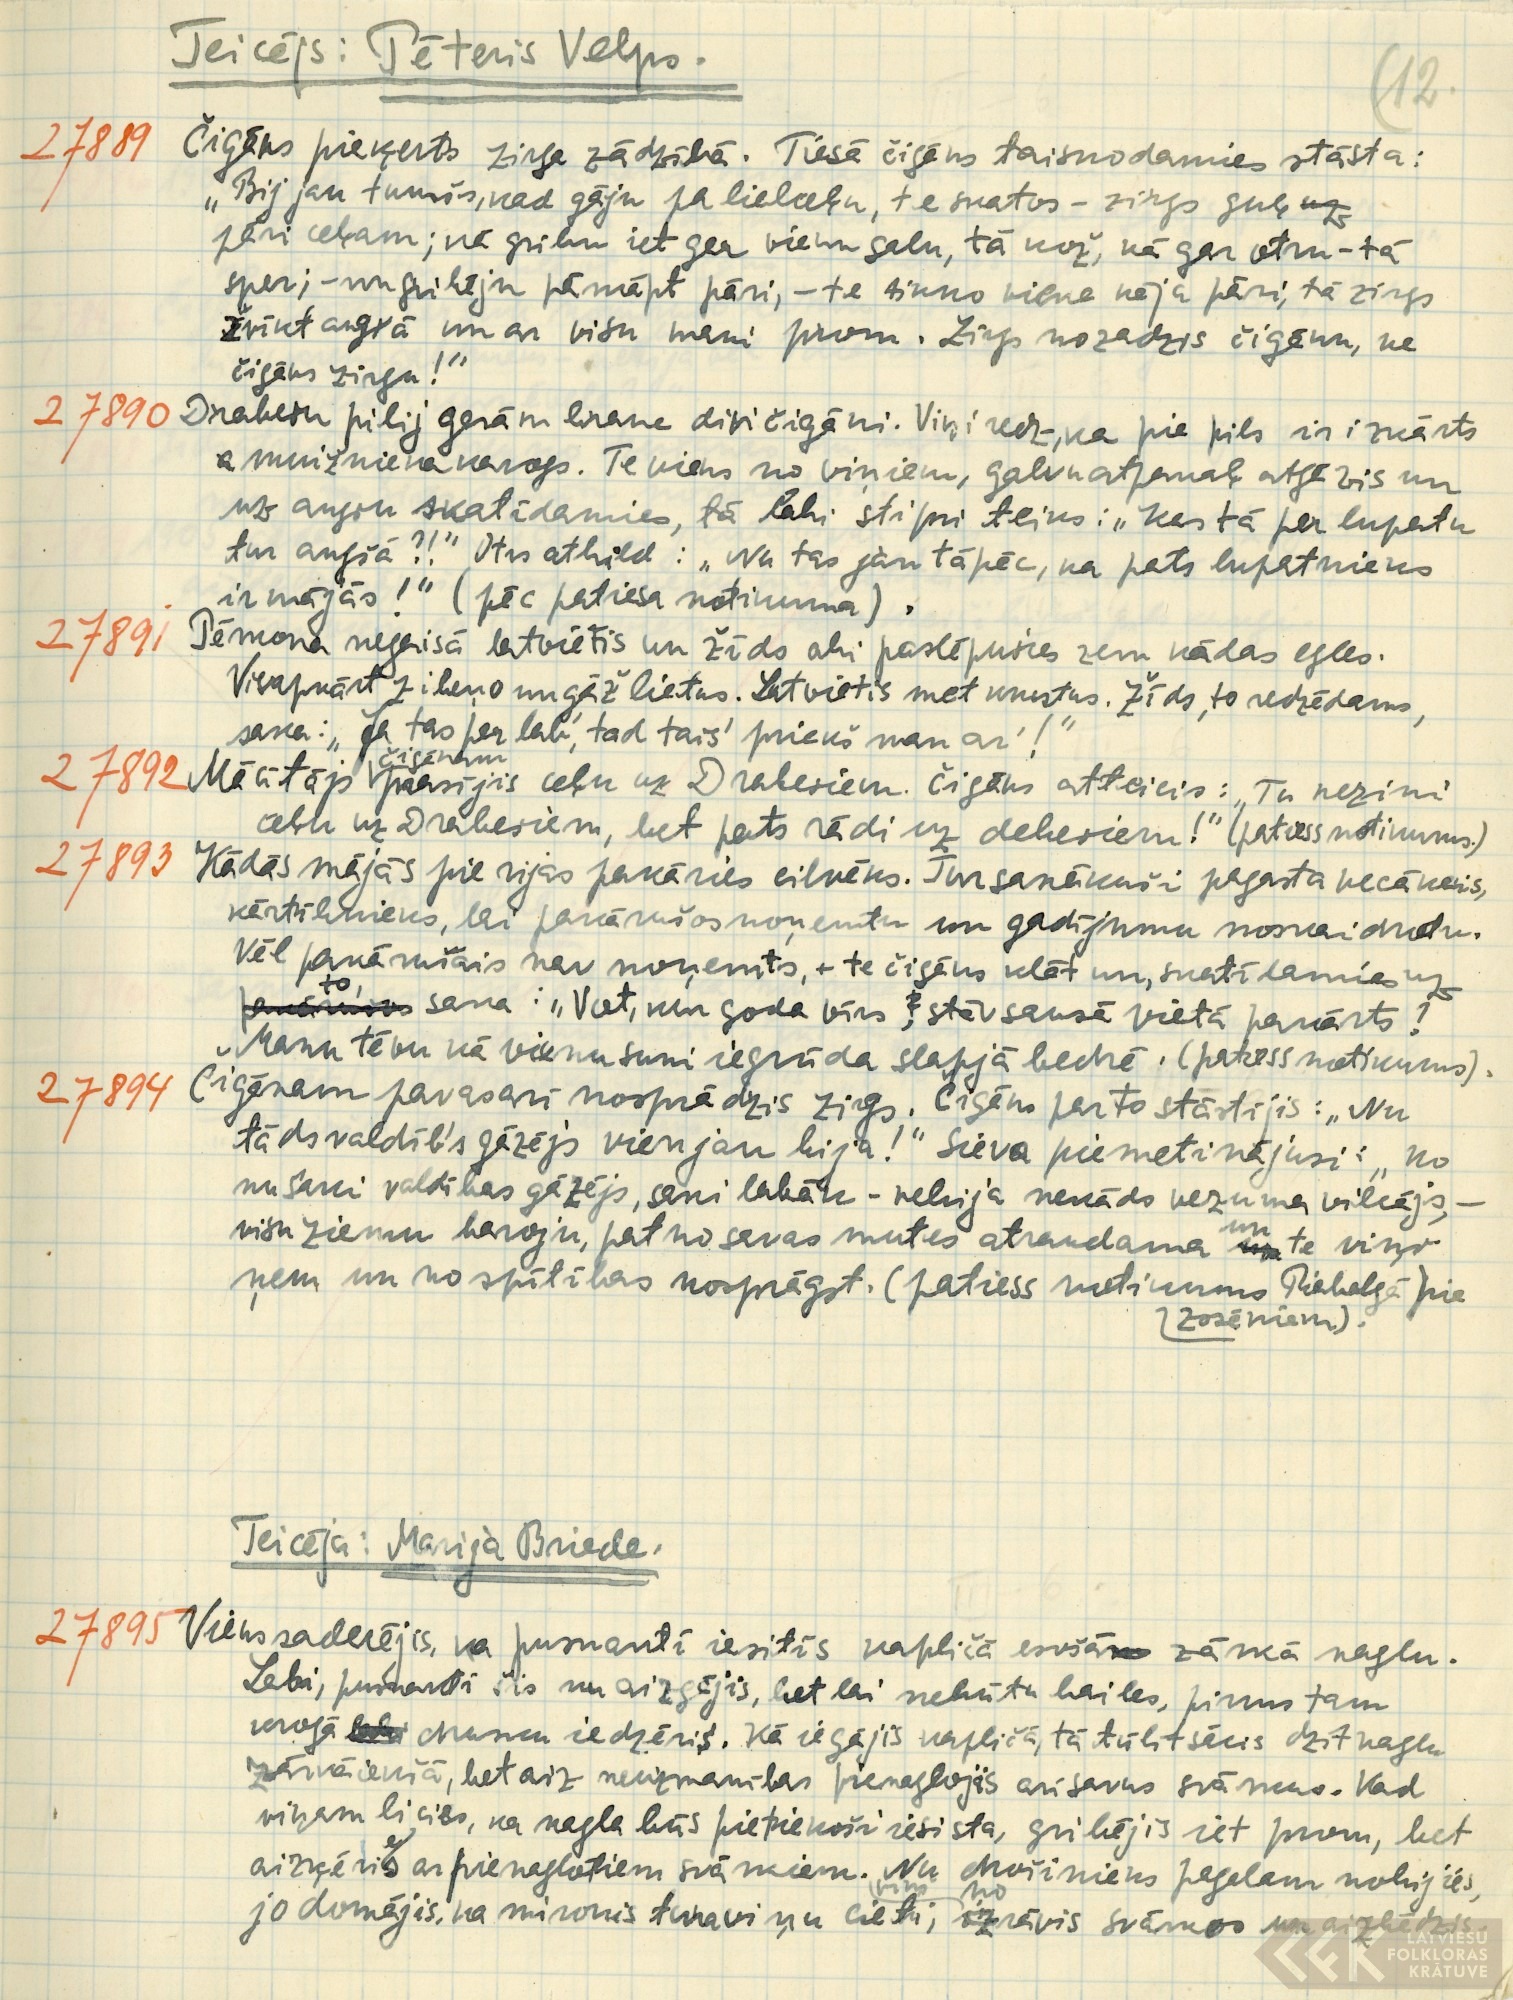 Teicējs: Pēteris Velps.
(12.
27889 Čigāns pieķerts zirga zādzībā. Tiesā čigāns taisnodamies stāsta:
„Bij jau tumšs, kad gāju pa lielceļu, te skatos – zirgs guļ
pāri ceļam; kā gribu iet gar vienu galu, tā kož, kā gar otru – tā
sper; – un gribēju pārkāpt pāri, – te tikko viena kāja pāri, tā zirgs
žvīkt augšā un ar visu mani prom. Zirgs nozadzis čigānu, ne
čigāns zirgu!"
27890 Drabešu pilij garām brauc divi čigāni. Viņi redz, ka pie pils ir izkārts
muižnieka karogs. Te viens no viņiem, galvu atpakaļ atgāzis un
uz augšu skatīdamies, tā labi stipri teiks: „Kas tā par lupatu
tur augšā?!" Otrs atbild: „Nu tas jau tāpēc, ka pats lupatnieks
ir mājās!" (pēc patiesa notikuma).
27891 Pērkona negaisā latvietis un žīds abi paslēpušies zem kādas egles.
Visapkārt zibeņo un gāž lietus. Latvietis met krustus. Žīds, to redzēdams,
saka: „Ja tas par lab', tad tais' priekš man ar'!"
27892 Mācītājs čigānam prasījis ceļu uz Drabešiem. Čigāns atteicis: „Tu nezini
ceļu uz Drabešiem, bet pats rādi uz debesiem!" (patiess notikums.)
27893 Kādās mājās pie rijas pakāries cilvēks. Tur sanākuši pagasta vecākais,
kārtībnieks, lai pakārušos noņemtu un gadījumu noskaidrotu.
Vēl pakārušais nav noņemts, te čigāns klāt un, skatīdamies uz
to, saka: „Vot, kur goda vīrs, stāv sausā vietā pakārts!
Manu tēvu kā vienu suni iegrūda slapjā bedrē. (patiess notikums).
27894 Čigānam pavasarī nosprādzis zirgs. Čigāns par to stāstījis: „Nu
tāds valdīb's gāzējs vien jau bija!" Sieva piemetinājusi: „Ko
nu saki valdības gāzējs, saki labāk – nebija nekāds vezuma vilcējs, –
visu ziemu baroju, pat no savas mutes atraudama un te viņš
ņem un no spītības nosprāgst. (patiess notikums Piebalgā pie
Zosēniem).
Teicēja: Marija Briede.
27895 Viens saderējis, ka pusnaktī iesitīs kapličā esošā zārkā naglu.
Labi, pusnaktī šis nu aizgājis, bet lai nebūtu bailes, pirms tam
krogā drusku iedzēris. Kā iegājis kapličā, tā tūlīt sācis dzīt naglu
zārkā iekšā, bet aiz neuzmanības pienaglojis arī savus svārkus. Kad
viņam licies, ka nagla būs pietiekoši iesista, gribējis iet prom, bet
aizķēries ar pienaglotiem svārkiem. Nu drošinieks pagalam nobijies,
jo domājis, ka mironis tura viņu cieti, viņš norāvis svārkos un aizbēdzis.
LATVIEŠU
FOLKLORAS
KRĀTUVE